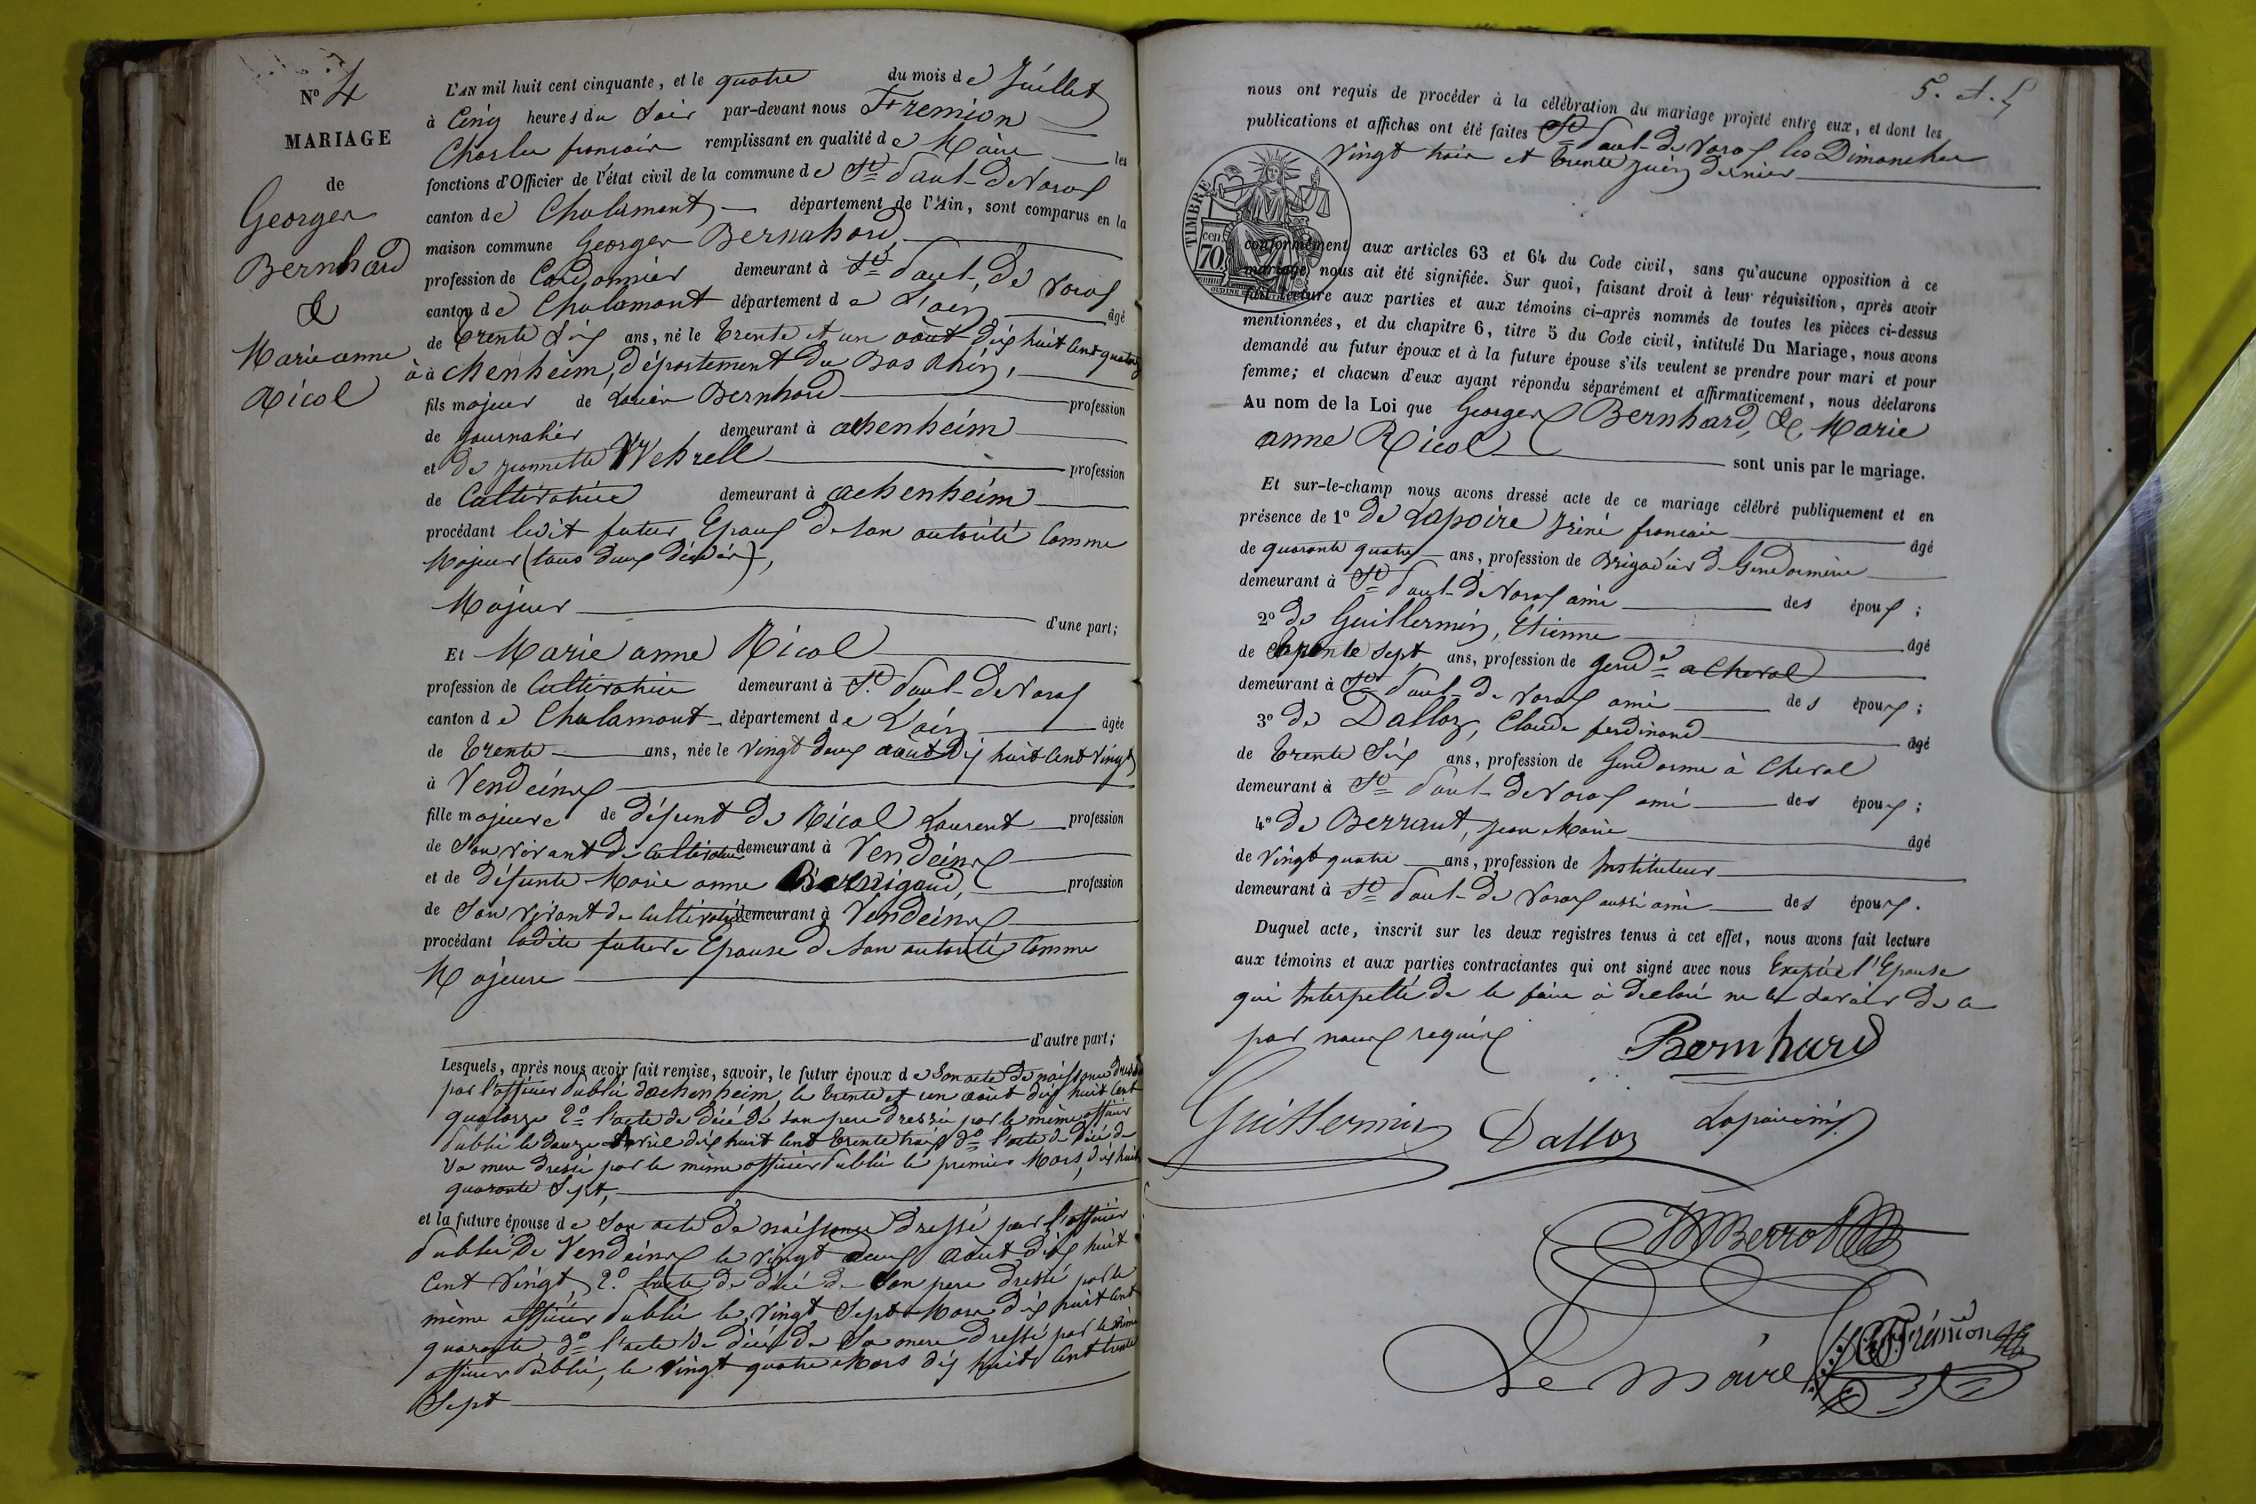 N° 4
MARIAGE
de
Georges
Bernhard
&
Marie anne
Ricol
L'AN mil huit cent cinquante, et le quatre du mois de Juillet
à Cinq heures du Soir par-devant nous Fremion
Charles françois remplissant en qualité de Maire les
fonctions d'Officier de l'état civil de la commune de St Paul-De Varax
canton de Chalamont département de l'Ain, sont comparus en la
maison commune Georges Bernahard
profession de Cordonnier demeurant à St Paul-De Varax
canton de Chalamont département de L'ain âgé
de trente Six ans, né le trente et un août dix huit Cent quatorze
à achenheim, département du Bas Rhin,
fils majeur de Bernhard profession
de journalier demeurant à achenheim
et de jeannette Wehrell profession
de Cultivatrice demeurant à achenheim
procédant ledit futur Epoux de son autorité Comme
Majeur (tous deux décédés),
Majeur d'une part;
Et Marie anne Ricol
profession de Cultivatrice demeurant à St Paul-De Varax
canton de Chalamont département de L'ain âgée
de trente ans, née le vingt deux août dix huit Cent Vingt
à Vendeins
fille majeure de défunt De Ricol Laurent profession
de Son vivant de Cultivateur demeurant à Vendeins
et de défunte Marie anne profession
de Son vivant de Cultivatrice demeurant à Vendeins
procédant ladite future Epouse de son autorité Comme
Majeure
d'autre part;
Lesquels, après nous avoir fait remise, savoir, le futur époux de Son acte De naissance Dressé
par l'officier Public d'achenheim, le trente et un août dix huit Cent
quatorze 2° l'acte de décé De son pere dressé par le même officier
Public le Douze avril dix huit Cent trente trois 3° l'acte de décé de
Sa mere dressé par le même officier Public le premier Mars, dix huit
quarante Sept,
et la future épouse de Son acte De naissance Dressé par l'officier
Public De Vendeins le Vingt deux août dix huit
Cent Vingt, 2° l'acte de décé de Son pere dressé par le
même officier Public le Vingt Sept Mars dix huit Cent
quarante 3° l'acte de décé de Sa mere dressé par le même
officier Public, le Vingt quatre Mars dix huit Cent trente
Sept
nous ont requis de procéder à la célébration du mariage projeté entre eux, et dont les
publications et affiches ont été faites St Paul-De Varax les Dimanches
Vingt trois et trente juin dernier
TIMBRE
cen.
70.
conformément aux articles 63 et 64 du Code civil, sans qu'aucune opposition à ce
mariage nous ait été signifiée. Sur quoi, faisant droit à leur réquisition, après avoir
fait lecture aux parties et aux témoins ci-après nommés de toutes les pièces ci-dessus
mentionnées, et du chapitre 6, titre 5 du Code civil, intitulé Du Mariage, nous avons
demandé au futur époux et à la future épouse s'ils veulent se prendre pour mari et pour
femme; et chacun d'eux ayant répondu séparément et affirmativement, nous déclarons
Au nom de la Loi que Georges Bernhard, & Marie
anne Ricol sont unis par le mariage.
Et sur-le-champ nous avons dressé acte de ce mariage célébré publiquement et en
présence de 1° De Lapoire françois âgé
de quarante quatre ans, profession de Brigadier de Gendarmerie
demeurant à St Paul-De Varax ami des époux;
2° De Guillermin, Etienne âgé
de trente Sept ans, profession de gend.e a Cheval
demeurant à St Paul-De Varax ami des époux;
3° De Dalloz, Claude ferdinand âgé
de trente Six ans, profession de Gendarme à Cheval
demeurant à St Paul-De Varax ami des époux;
4° De Berraut, jean Marie âgé
de Vingt quatre ans, profession de Instituteur
demeurant à St Paul-De Varax aussi ami des époux.
Duquel acte, inscrit sur les deux registres tenus à cet effet, nous avons fait lecture
aux témoins et aux parties contractantes qui ont signé avec nous Excepté l'Epouse
qui Interpellé de le faire à déclaré ne le savoir De ce
par nous requise
Bernhard
Guillermin
Dalloz
Le Maire
Frémion